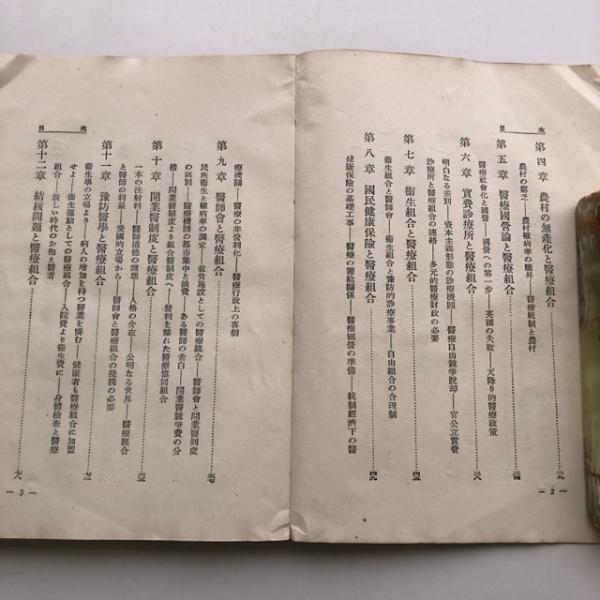 目次
第四章 農村の無產化と醫療組合
農村の窮乏——農村罹病率の昂昇——醫療統制と農村
第五章 醫療國營論と醫療組合
醫療社會化と國營——國營への第一步——英國の失敗——天降り的醫療政策
第六章 實費診療所と醫療組合
明白なる差別——資本主義形態の診療機關——醫療自由競爭脫却——官公立實費
診療所と醫療組合の連絡——多元的醫療財政の必要
第七章 衛生組合と醫療組合
衛生組合と醫師會——衛生組合と豫防的診療事業——自由組合の合理制
第八章 國民健康保險と醫療組合
健康保險の基礎工事——醫療の醫藥關係——醫療國營の準備——統制經濟下の醫
— 2 —
目次
療機關——醫療の非營利化——醫療行政上の喜劇
第九章 醫師會と醫療組合
民族衛生と罹病率の調定——救貧施設としての醫療組合——醫師會と開業醫制度
の區別——醫療機關の都市集中と浪費——ある醫師の告白——開業醫競爭費の分
擔——開業醫制度より組合醫制度へ——營利を離れた醫療協同組合
第十章 開業醫制度と醫療組合
一本の注射料——醫師道德の理想——人格の介在——公明なる世界——醫療組合
と醫師の利益——愛國的立場から——醫師會と醫療組合の提携の必要
第十一章 豫防醫學と醫療組合
衛生學の立場より——病人の增加を待つ醫業を悔む——健康者も醫療組合に加盟
せよ——衛生運動としての醫療組合——入院費より衛生費に——身體檢查と醫療
組合——新しい時代のお抱へ醫者
第十二章 結核問題と醫療組合
— 3 —